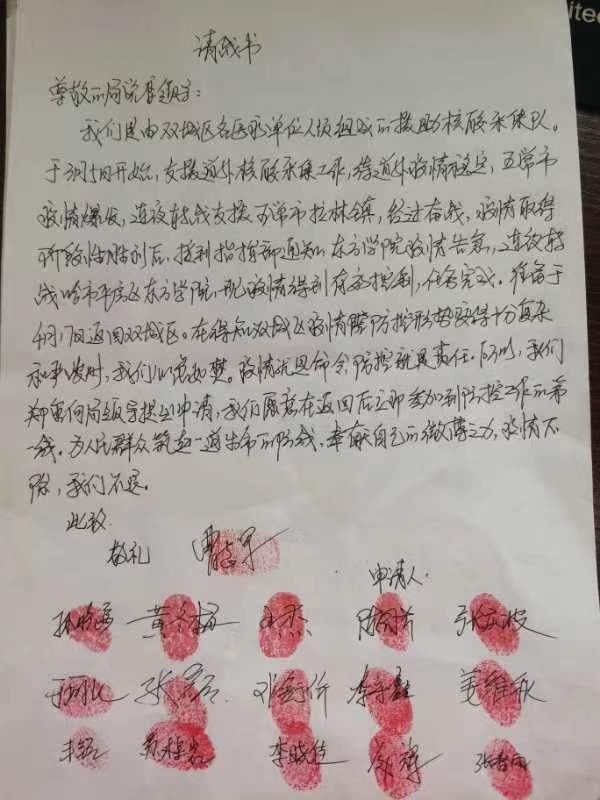 itec
请战书
尊敬的局党委领导:
我们是由双城区各医疗单位人员组成的援助核酸采集队。
于3月5日开始,支援道外核酸采集工作,待道外疫情稳定,五常市
疫情爆发,连夜转战支援五常市拉林镇,经过奋战,疫情取得
阶段性胜利后,接到指挥部通知东方学院疫情告急,连夜转
战哈市平房区东方学院,现疫情得到有效控制,任务完成。准备于
4月7日返回双城区。在得知双城区疫情防控形势变得十分复杂
和严峻时,我们心急如焚。疫情就是命令,防控就是责任。所以,我们
郑重向局领导提出申请,我们愿意在返回后立即参加到防控工作的第
一线。为人民群众筑起一道生命的防线,奉献自己的微薄之力,疫情不
除,我们不退。
此致
敬礼
申请人:
黄冬梅 王杰
张磊 姜维秋
李晓佳